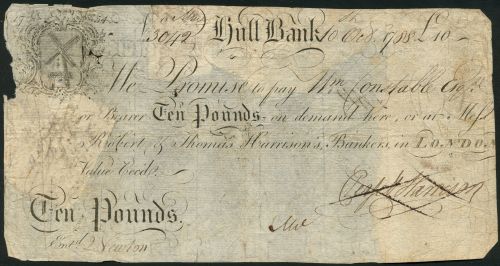 17 54
No 5042 Hull Bank 10th Octr. 1788 £10
We Promise to pay Wm. Constable Esqr.
or Bearer Ten Pounds on demand here, or at Messrs
Robert & Thomas Harrison's, Bankers, in LONDON
Value Reced.
Ten Pounds.
Entd. Newton